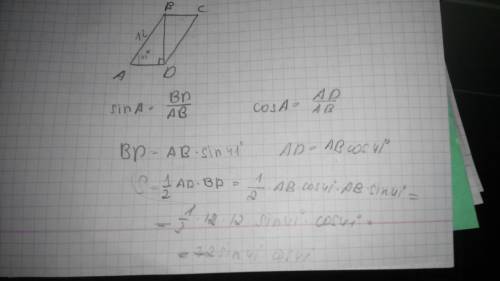 B C
12
41°
A D
sinA = BD/AB cosA = AD/AB
BD = AB·sin41° AD = ABcos41°
S = 1/2 AD·BD = 1/2·AB·cos41°·AB·sin41° =
= 1/2·12·12 sin41°·cos41° =
= 72sin41° cos41°